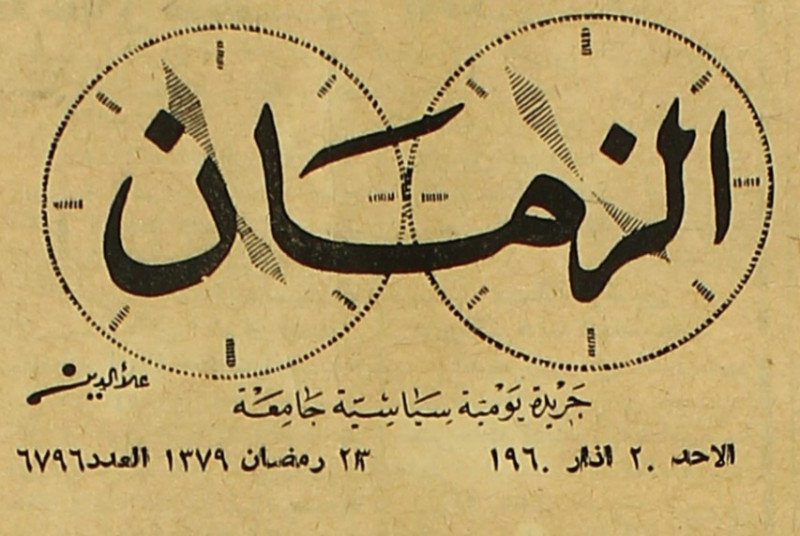 الزمان
علاالدين
جريدة يومية سياسية جامعة
الاحد ٢٠ اذار ١٩٦٠ ٢٣ رمضان ١٣٧٩ العدد ٦٧٩٦